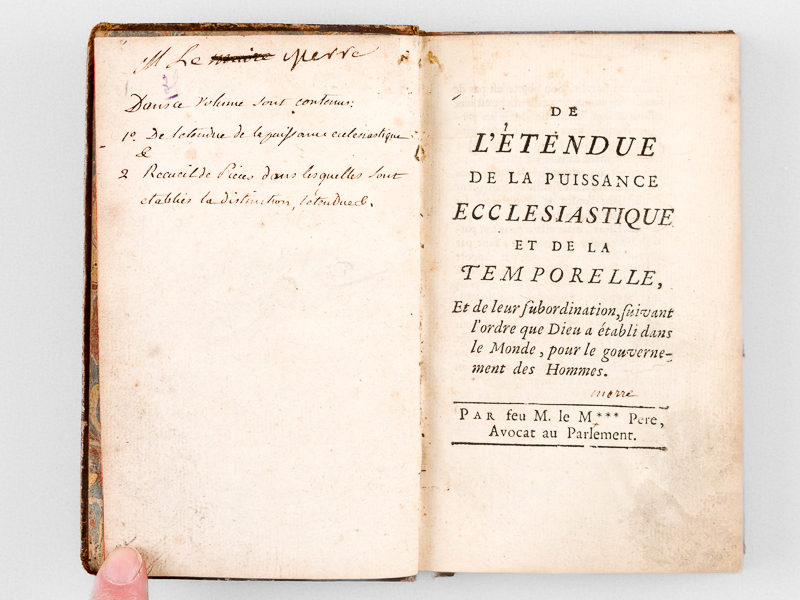 M Le maire Merre
Dans ce Volume sont contenus:
1º. De letendue de la puissance eclesiastique
&
2 Recueil de Pieces dans lesquelles sont
etablies la distinction, letendue &.
DE
L'ÉTENDUE
DE LA PUISSANCE
ECCLESIASTIQUE
ET DE LA
TEMPORELLE,
Et de leur subordination, suivant
l'ordre que Dieu a établi dans
le Monde, pour le gouverne-
ment des Hommes.
merre
PAR feu M. le M*** Pere,
Avocat au Parlement.